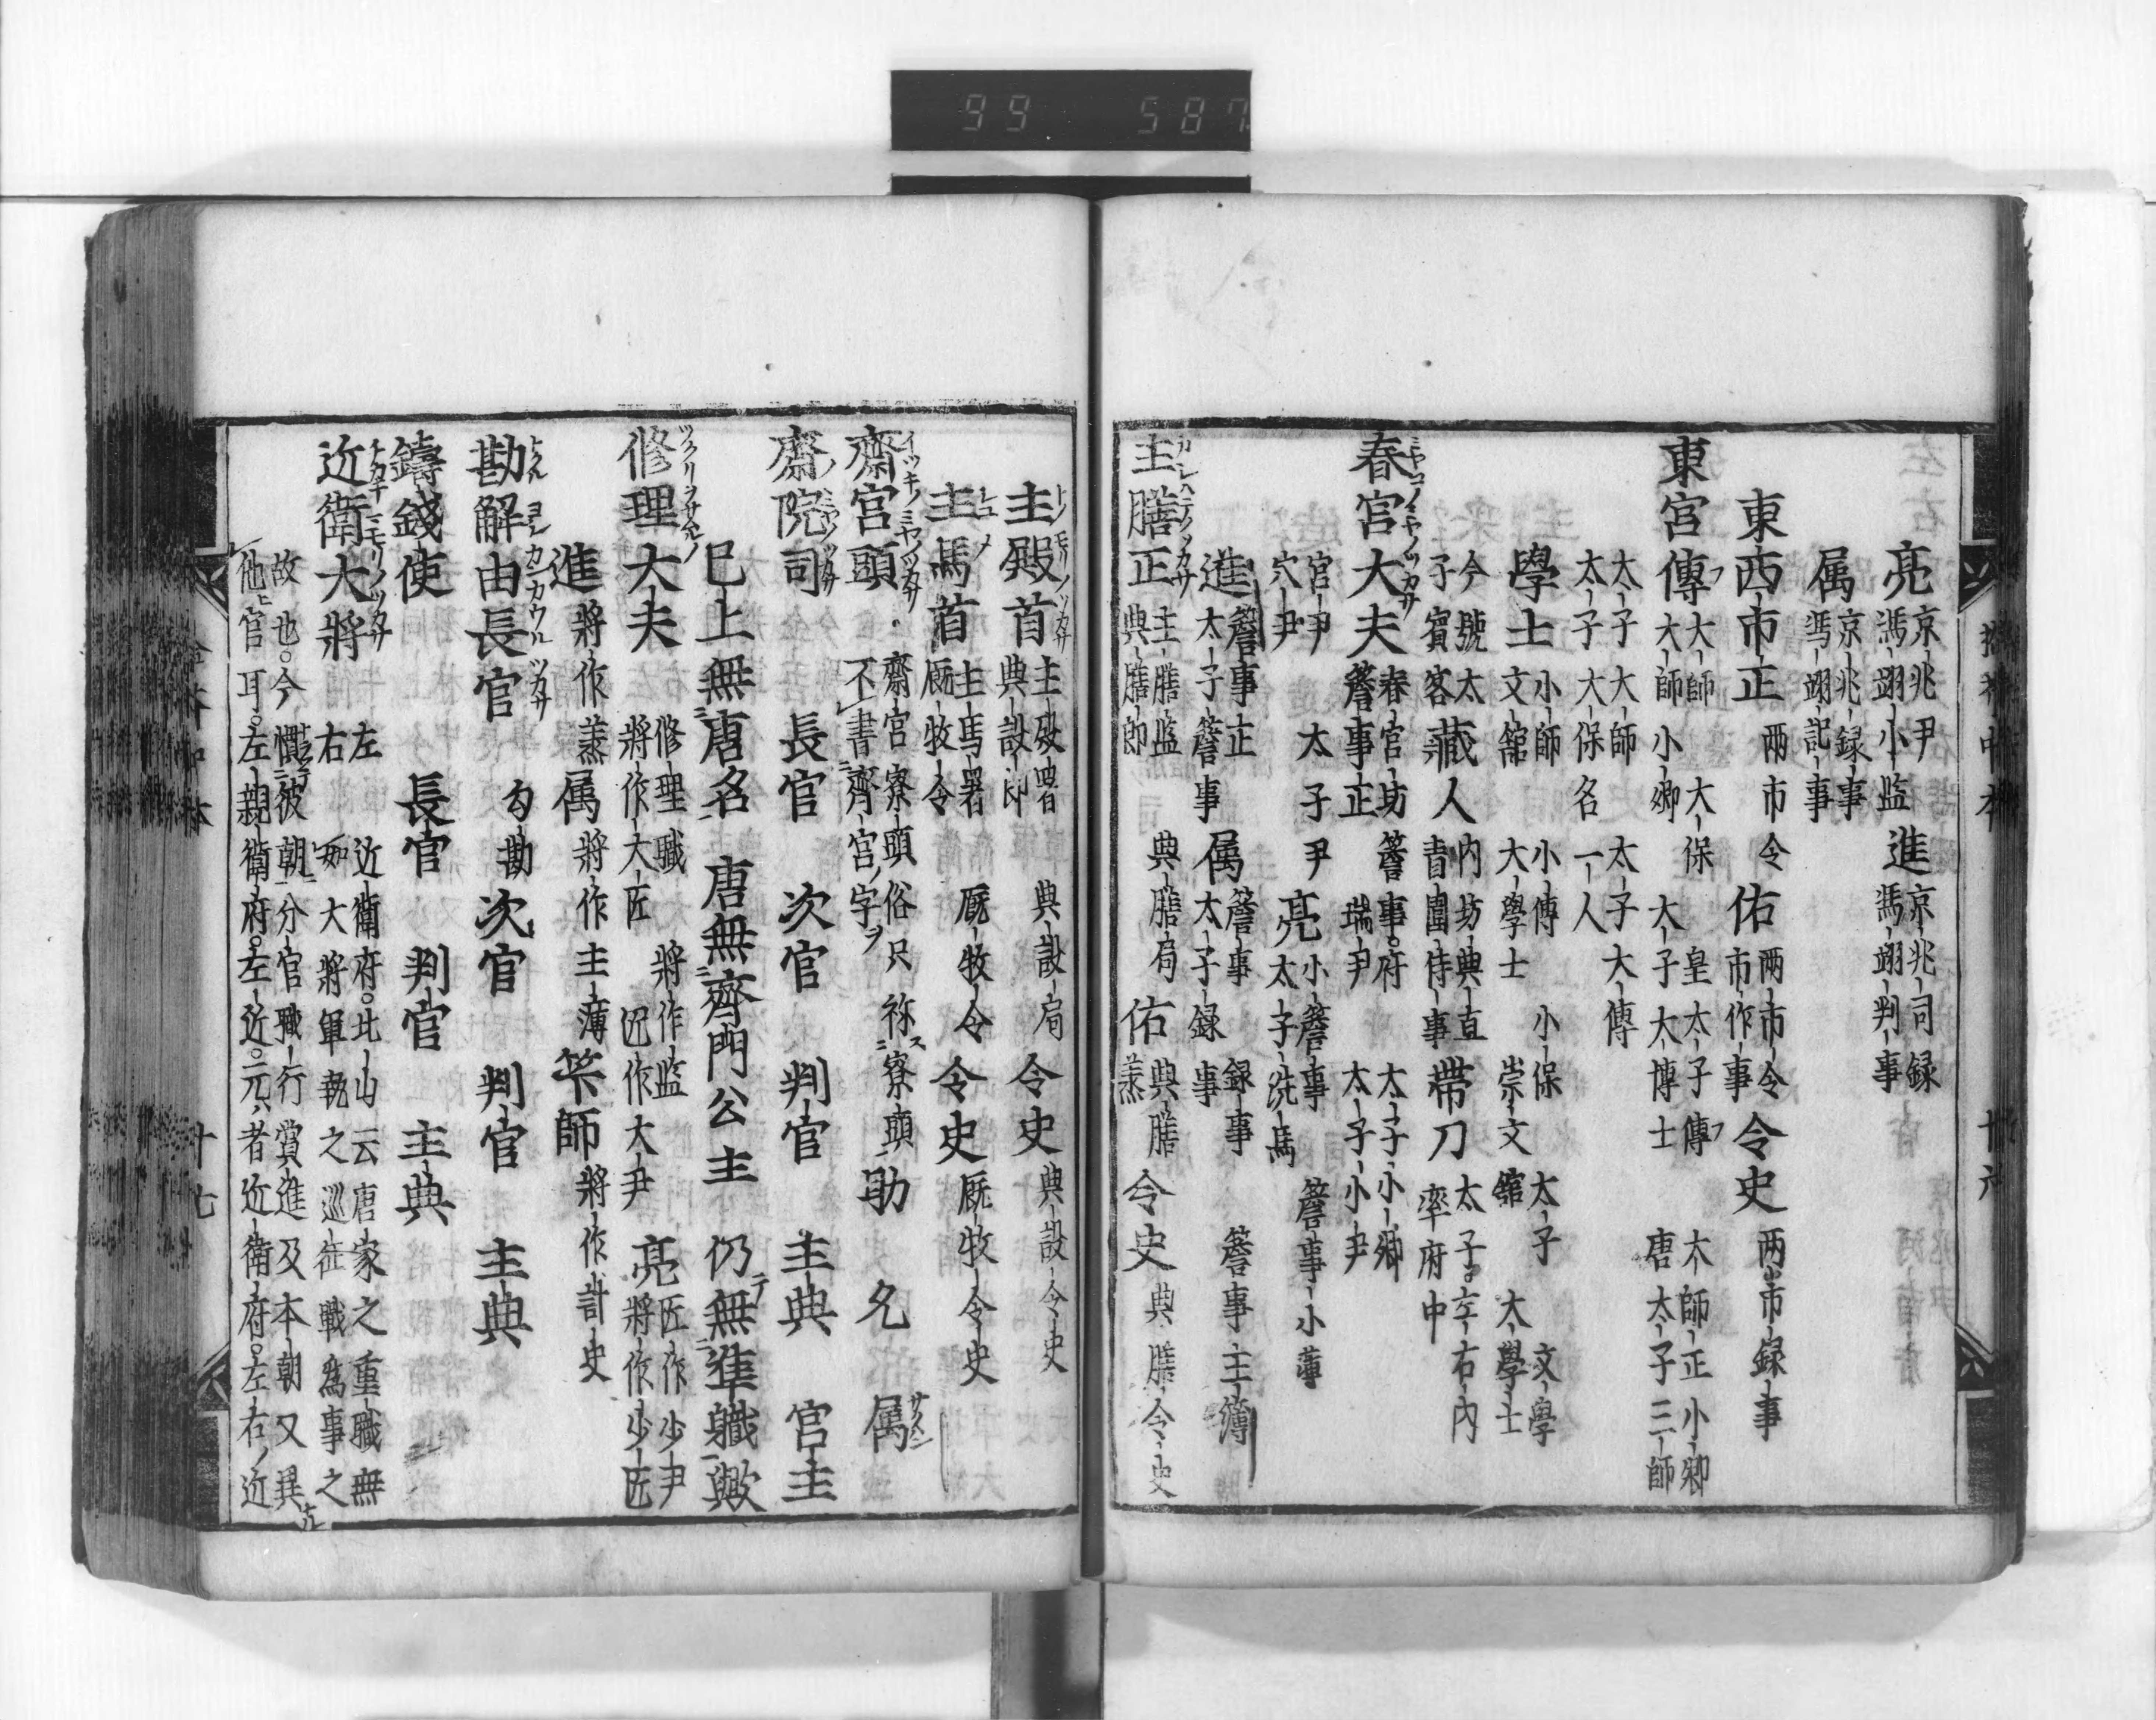 99 587
亮 京兆尹 馮翊小監 進 京兆司録 馮翊判事
属 京兆録事 馮翊記事
東西市正 両市令 佑 両市令 市作事 令史 両市録事
東宮傳 大師 大師 小卿 大保 太子大博士 皇太子傳 大師正小卿 唐太子三師
太子大師 太子大保名 太子大傳 一人
學士 小師 文舘 小傳 大學士 小保 崇文舘 太子文學 太學士
今號太子賓客 藏人 内坊典直 書圍侍事 帶刀 太子左右内率府中
春宮大夫 春宮坊 詹事正 詹事府 瑞尹 太子小卿 太子小尹
宮尹 穴尹 太子尹 亮 小詹事 太子洗馬 詹事小薄
進 詹事正 太子詹事 属 詹事 太子録事 録事 詹事主簿
主膳正 主膳監 典膳郎 典膳局 佑 典膳 羨 令史 典膳令史
十六
主殿首 主殿署 典設郎 典設局 令史 典設令史
主馬首 主馬署 厩牧令 厩牧令 令史 厩牧令史
齋宮頭 齋宮寮頭俗只祢寮頭 不書齊宮字 助 允 属
齋院司 長官 次官 判官 主典 宮主
已上無唐名 唐無齊門公主 仍無準職歟
修理大夫 修理職 將作大匠 將作監 匠作大尹 亮 匠作少尹 將作少匠
進 將作羨 属 將作主薄 筭師 將作計史
勘解由長官 勾勘 次官 判官 主典
鑄錢使 長官 判官 主典
近衛大將 左 右 近衛府。北山云唐家之重職無 如大將軍執之巡征戰為事之
故也。今慣彼朝分官職行賞進及本朝又異 他官耳。左親衛府。左近。元者近衛府。左右近
十七